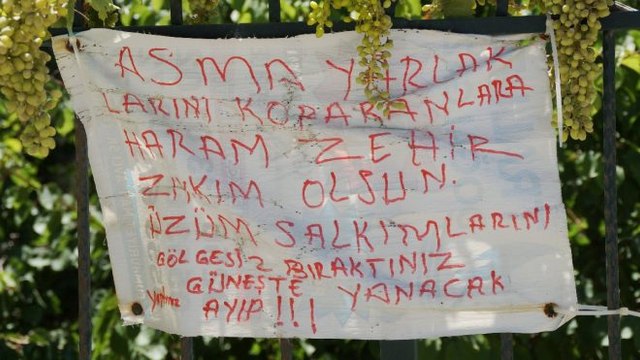 ASMA YARLAK
LARINI KOPARANLARA
HARAM ZEHİR
ZAKIM OLSUN.
ÜZÜM SALKIMLARINI
GÖLGESİZ BIRAKTINIZ
GÜNEŞTE YANACAK
AYIP!!!